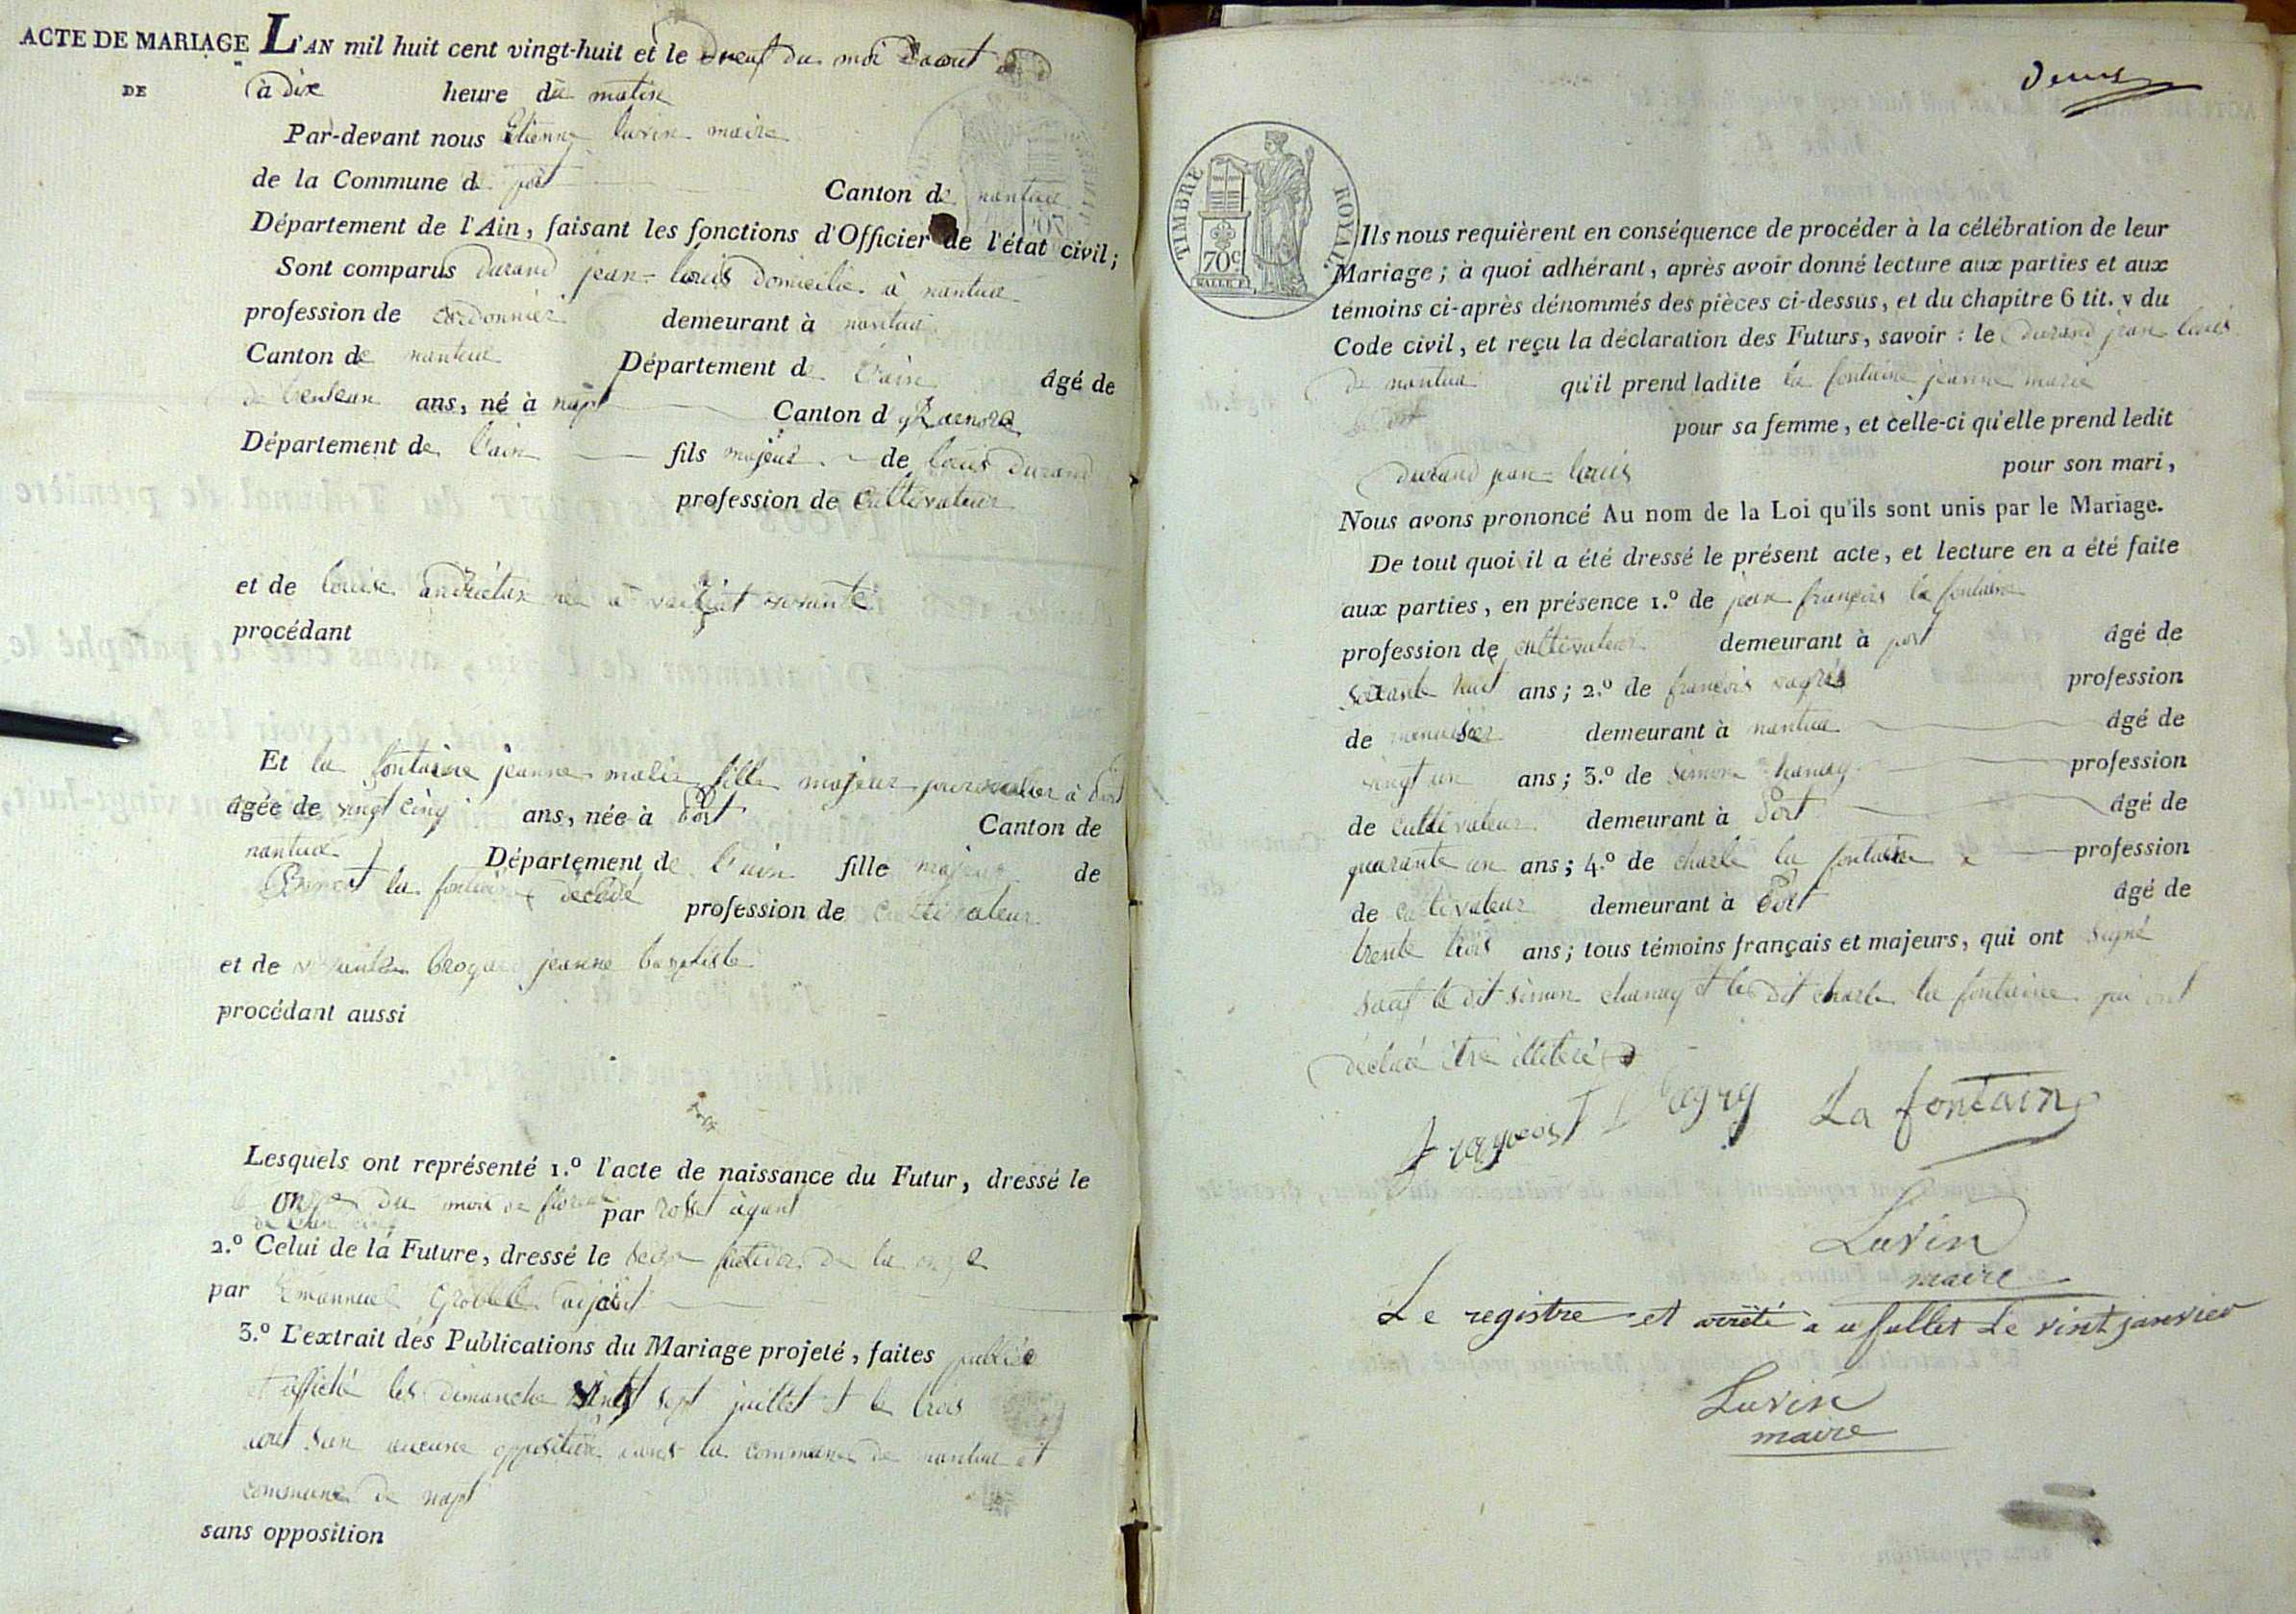 ACTE DE MARIAGE L'AN mil huit cent vingt-huit et le neuf du moi d'aout
DE à dix heure du matin
Par-devant nous Etienne Luvin maire
de la Commune de port Canton de nantua
Département de l'Ain, faisant les fonctions d'Officier de l'état civil;
Sont comparus durand jean-louis domicilié à nantua
profession de cordonnier demeurant à nantua
Canton de nantua Département de l'ain âgé de
de ans, né à napt Canton d
Département de l'ain fils majeur de louis durand
profession de cultivateur
et de louise née à
procédant
Et la fontaine jeanne marie fille majeur à Port
âgée de vingt cinq ans, née à Port Canton de
nantua Département de l'ain fille majeur de
la fontaine décédé profession de cultivateur
et de jeanne baptiste
procédant aussi
Lesquels ont représenté 1.º l'acte de naissance du Futur, dressé le
onze du mois de par
2.º Celui de la Future, dressé le de la
par Emannuel
3.º L'extrait des Publications du Mariage projeté, faites publiée
et affiché les dimanche vingt sept juillet et le trois
aout san aucune opposition dans la commune de nantua et
commune de napt
sans opposition
Deux
TIMBRE ROYAL.
70c
Ils nous requièrent en conséquence de procéder à la célébration de leur
Mariage; à quoi adhérant, après avoir donné lecture aux parties et aux
témoins ci-après dénommés des pièces ci-dessus, et du chapitre 6 tit. v du
Code civil, et reçu la déclaration des Futurs, savoir: le durand jean louis
de nantua qu'il prend ladite la fontaine jeanne marie
de port pour sa femme, et celle-ci qu'elle prend ledit
durand jean-louis pour son mari,
Nous avons prononcé Au nom de la Loi qu'ils sont unis par le Mariage.
De tout quoi il a été dressé le présent acte, et lecture en a été faite
aux parties, en présence 1.º de jean françois la fontaine
profession de cultivateur demeurant à port âgé de
soixante huit ans; 2.º de françois profession
de menuisier demeurant à nantua âgé de
vingt un ans; 3.º de simon chanay profession
de cultivateur demeurant à Port âgé de
quarante un ans; 4.º de charle la fontaine profession
de cultivateur demeurant à Port âgé de
trente trois ans; tous témoins français et majeurs, qui ont signé
sauf le dit simon chanay et le dit charle la fontaine qui ont
déclaré être illiteré
La fontaine
Luvin
maire
Le registre et arrêté a Le vint janvier
Luvin
maire